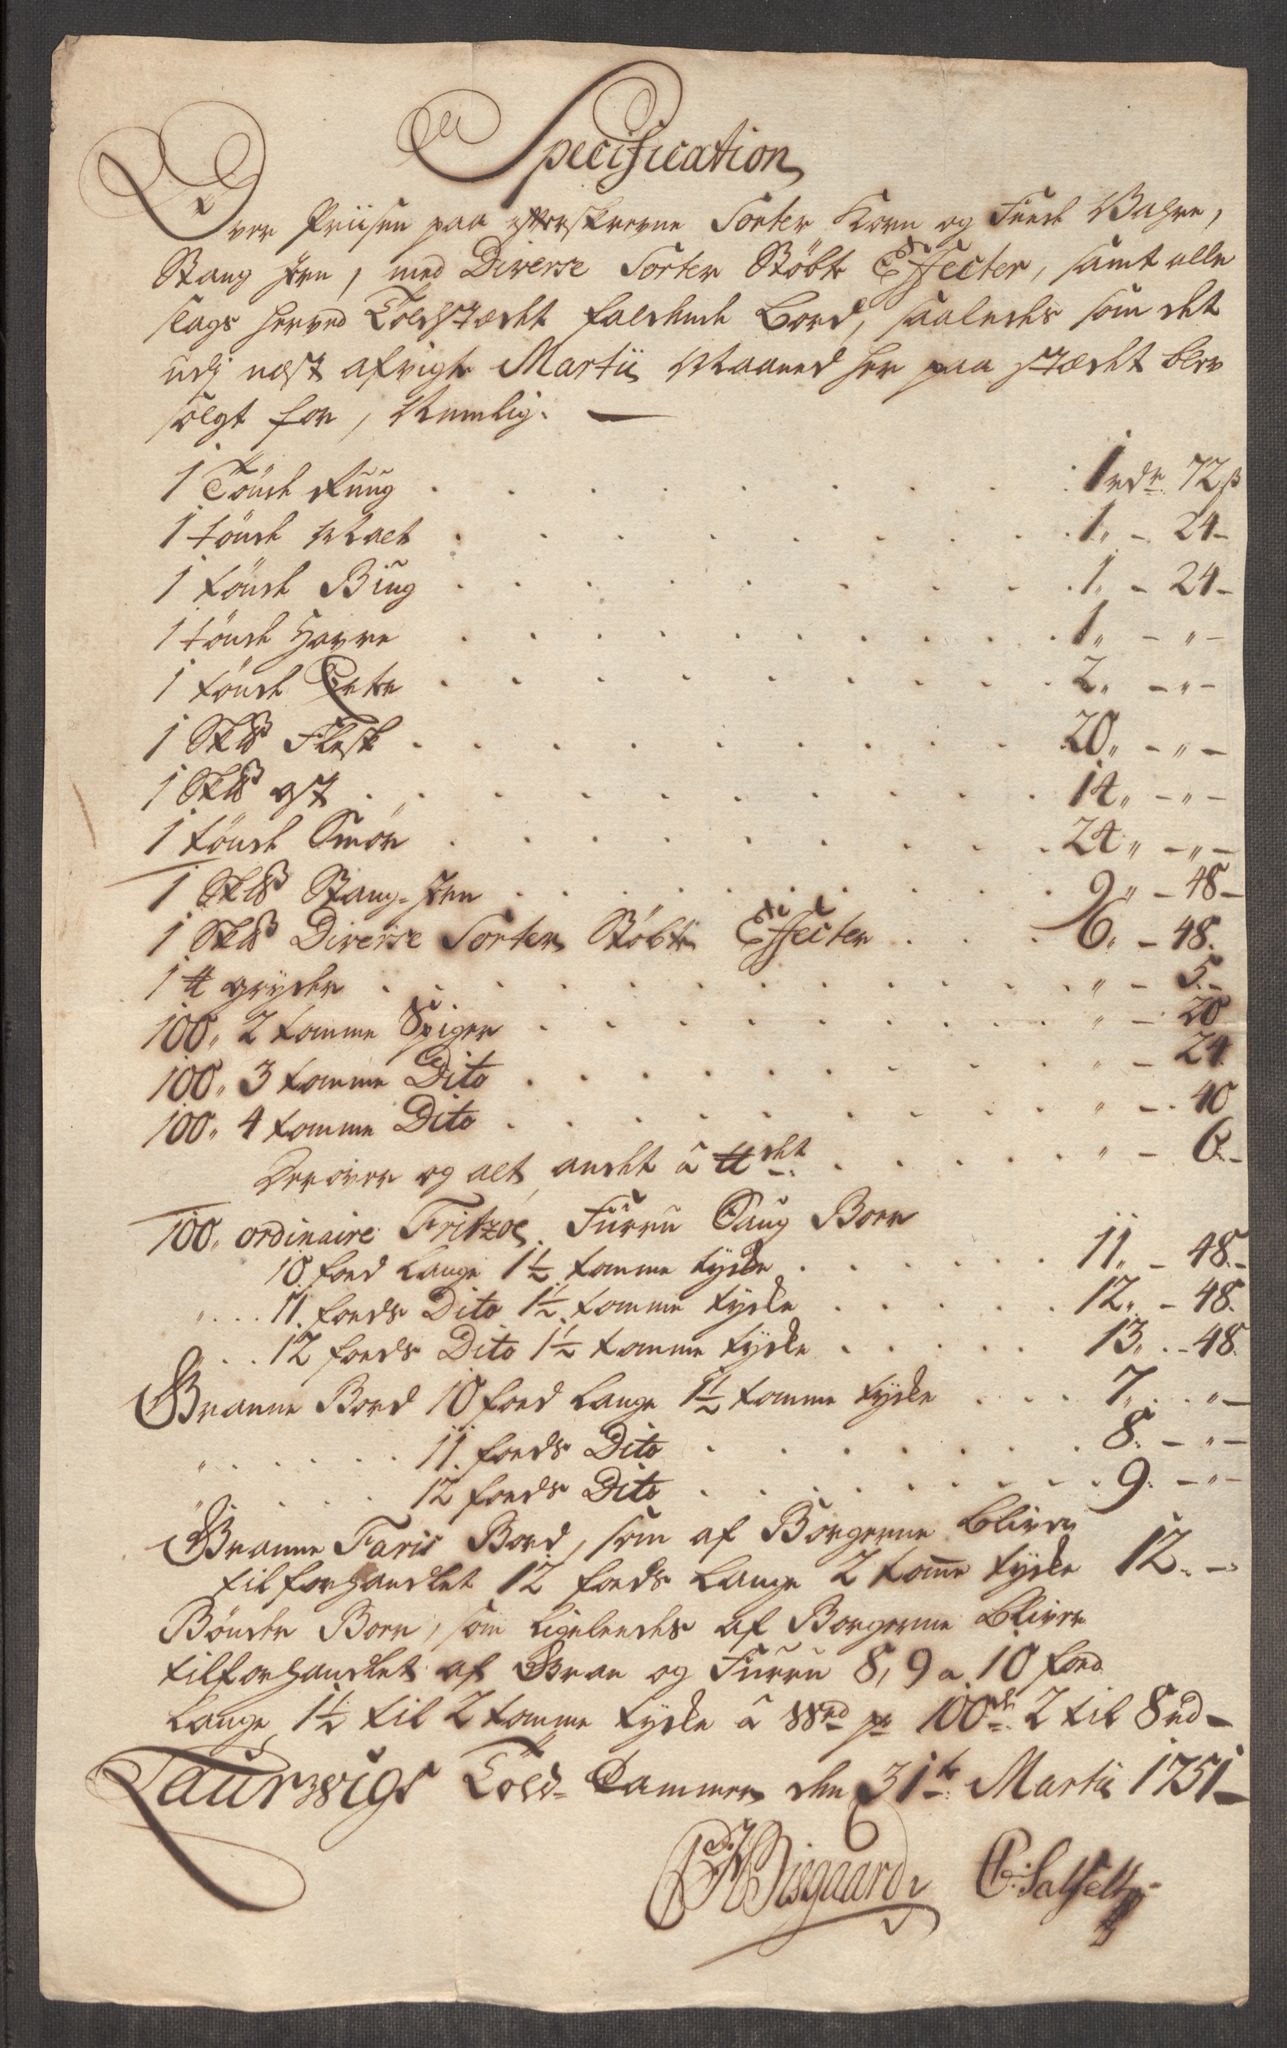 Specification
Over Priisen paa efterskrevne Sorter Korn og Feede Vahre,
Stang Jern, med Diverse Sorter Støbte Effecter, samt alle
slags herved Toldstædet faldende Bord, saaledes som det
udj næst afvigte Martii Maaned her paa stædet blev
solgt for, Nemlig.
1 Tönde Rúúg . . . 1 rdr. 72 ß
1 tönde Malt . . . 1 „ - 24 -
1 tönde Biug . . . 1 „ - 24 -
1 tönde Havre . . . 1 „ - „ -
1 tönde Erter . . . 2 „ - „ -
1 Sk℔ Flesk . . . 20 „ - „ -
1 Sk℔ Ost . . . 14 „ - „ -
1 tönde Smör . . . 24 „ - „ -
1 Sk℔ Stang-Jern . . . 9 „ - 48 -
1 Sk℔ Diverse Sorter Støbte Effecter . . . 6 „ - 48.
1 ℔ gryder . . . „ - 5. -
100 „ 2 tomme Spiger . . . „ - 20
100 „ 3 tomme Dito . . . „ - 24
100 „ 4 tomme Dito . . . „ - 40
Derover og alt andet â ℔det . . . „ - 6. -
100 „ ordinaire Fritzøe Fúrrú Saug Bord
10 foed Lange 1½ tomme tÿcke . . . 11 „ - 48. -
„ . . . 11 foeds Dito 1½ tomme tÿcke . . . 12 „ - 48.
„ . . 12 foeds Dito 1½ tomme tÿcke . . . 13 „ . - 48.
Granne Bord 10 foed Lange 1½ tomme tÿcke . . . 7 „ . . „ -
„ . . . . . 11. foeds Dito . . . 8. - „ -
„ . . . . 12 foeds Dito . . . 9. - „ -
Granne Faris Bord, som af Borgerne bliver
tilforhandlet 12 foeds Lange 2 tomme tÿcke 12 „ -
Bönder Bord, som ligeleedes af Borgerne blive
tilforhandlet af Gran og Fúrrú 8, 9 a 10 foed
Lange, 1½ til 2 tomme tÿcke â pr 100de 2 til 8 rd -
Laurwigs Told-Cammer den 31te Martii 1751 -
Bisgaard C: Salfelt